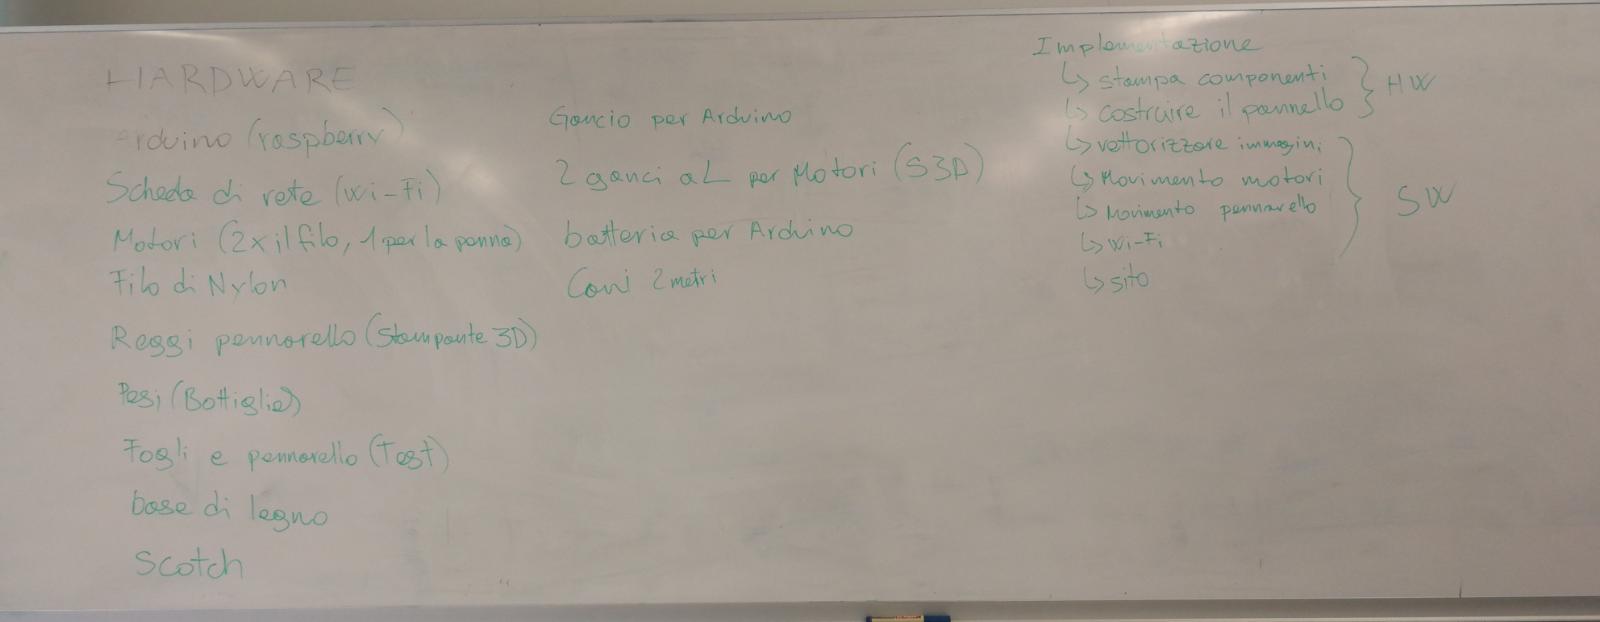 HARDWARE
Arduino (raspberry)
Scheda di rete (Wi-Fi)
Motori (2x il filo, 1 per la penna)
Filo di Nylon
Reggi pennarello (Stampante 3D)
Pesi (Bottiglie)
Fogli e pennarello (Test)
base di legno
Scotch
Gancio per Arduino
2 ganci a L per Motori (S3D)
batteria per Arduino
Cavi 2 metri
Implementazione
↳ stampa componenti
↳ costruire il pannello
} HW
↳ vettorizzare immagini
↳ Movimento motori
↳ Movimento pennarello
↳ Wi-Fi
} SW
↳ sito